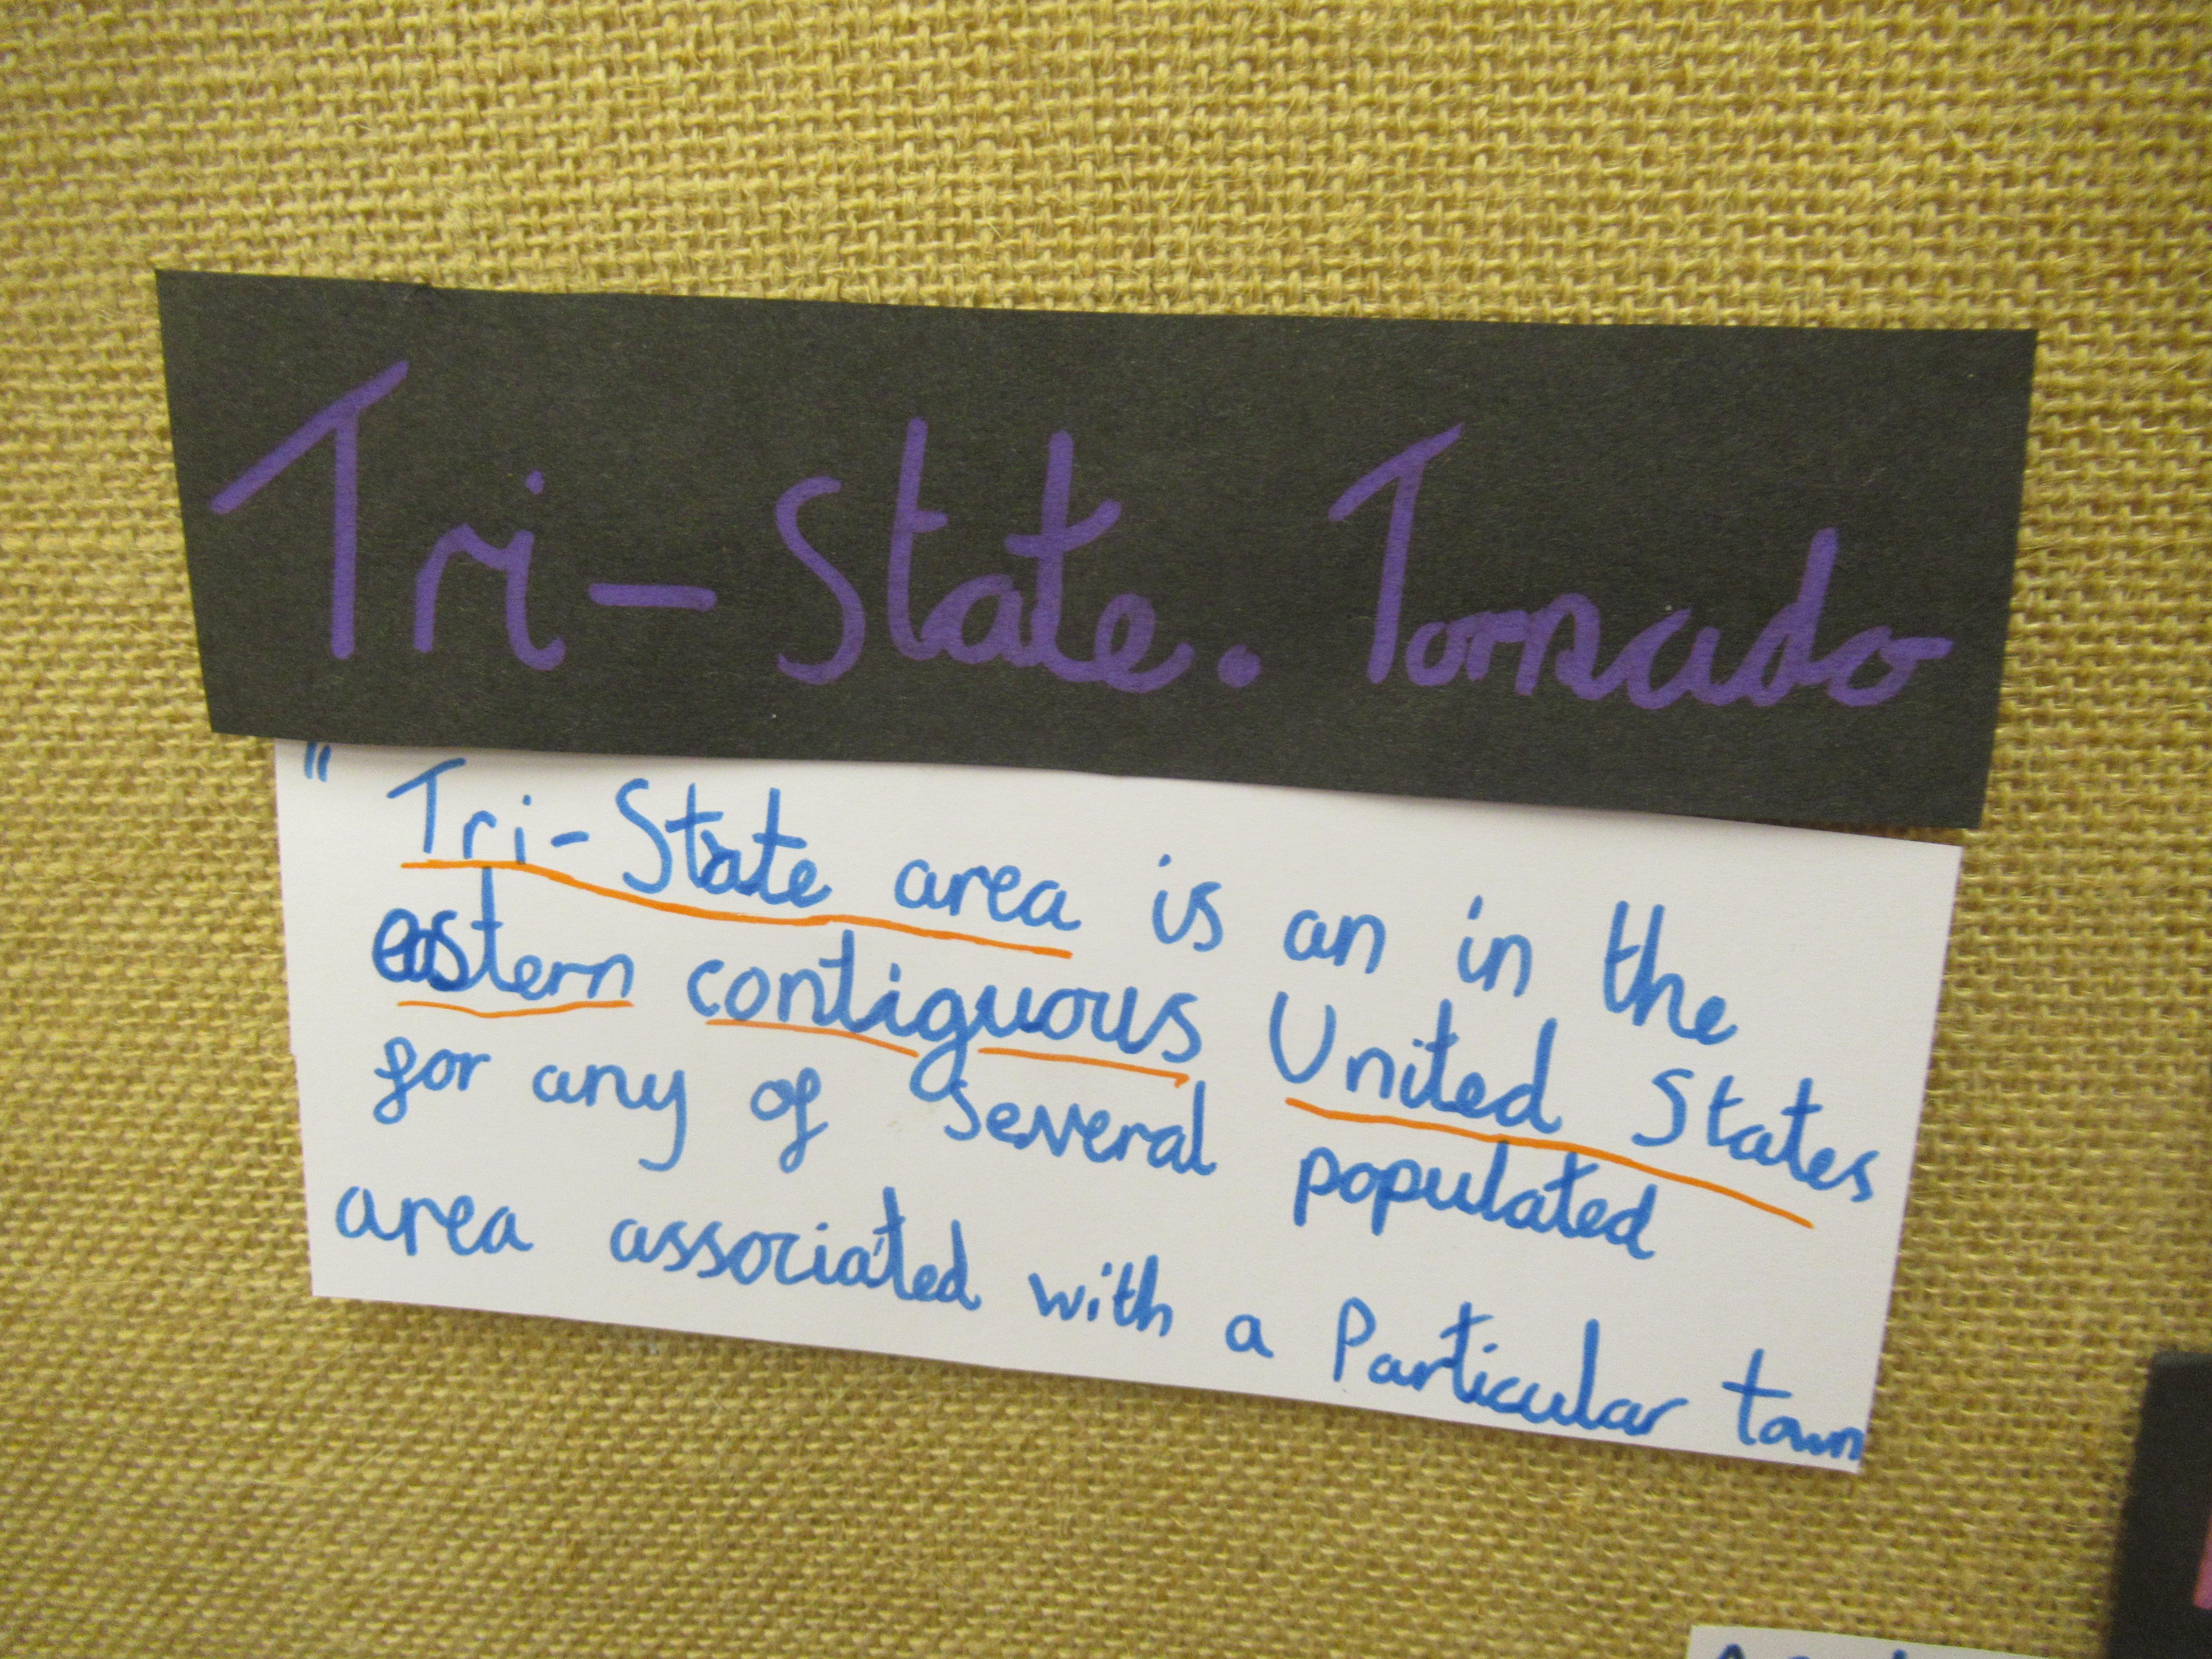 Tri-State. Tornado
" Tri-State area is an in the
eastern contiguous United States
for any of several populated
area associated with a Particular town